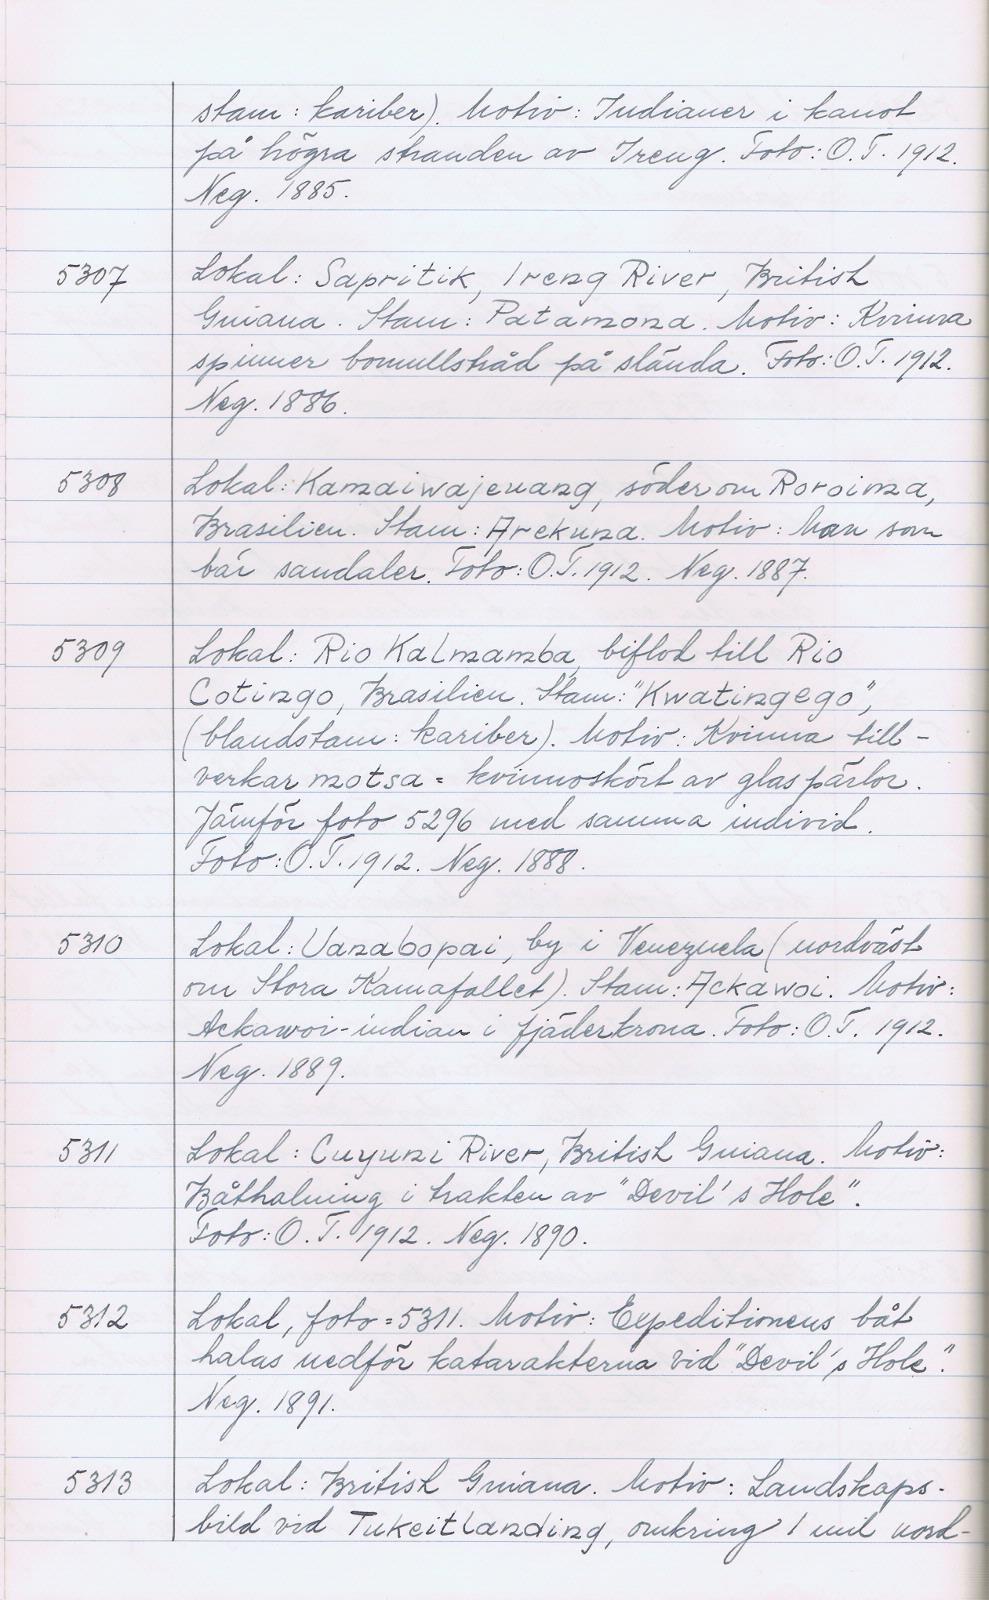 stam: kariber). Motiv: Indianer i kanot
på högra stranden av Ireng. Foto: O.T. 1912.
Neg. 1885.
5307 Lokal: Sapritik, Ireng River, British
Guiana. Stam: Patamona. Motiv: Kvinna
spinner bomullstråd på slända. Foto: O.T. 1912.
Neg. 1886.
5308 Lokal: Kamaiwajenang, söder om Roroima,
Brasilien. Stam: Arekuna. Motiv: Man som
bär sandaler. Foto: O.T. 1912. Neg. 1887.
5309 Lokal: Rio Kalmamba, biflod till Rio
Cotingo, Brasilien. Stam: "Kwatingego",
(blandstam: kariber). Motiv: Kvinna till-
verkar motsa = kvinnoskört av glaspärlor.
Jämför foto 5296 med samma individ.
Foto: O.T. 1912. Neg. 1888.
5310 Lokal: Uanabopai, by i Venezuela (nordväst
om Stora Kamafallet). Stam: Ackawoi. Motiv:
Ackawoi-indian i fjäderkrona. Foto: O.T. 1912.
Neg. 1889.
5311 Lokal: Cuyuni River, British Guiana. Motiv:
Båthalning i trakten av "Devil's Hole".
Foto: O.T. 1912. Neg. 1890.
5312 Lokal, foto = 5311. Motiv: Expeditionens båt
halas nedför katarakterna vid "Devil's Hole".
Neg. 1891.
5313 Lokal: British Guiana. Motiv: Landskaps-
bild vid Tukeitlanding, omkring 1 mil nord-